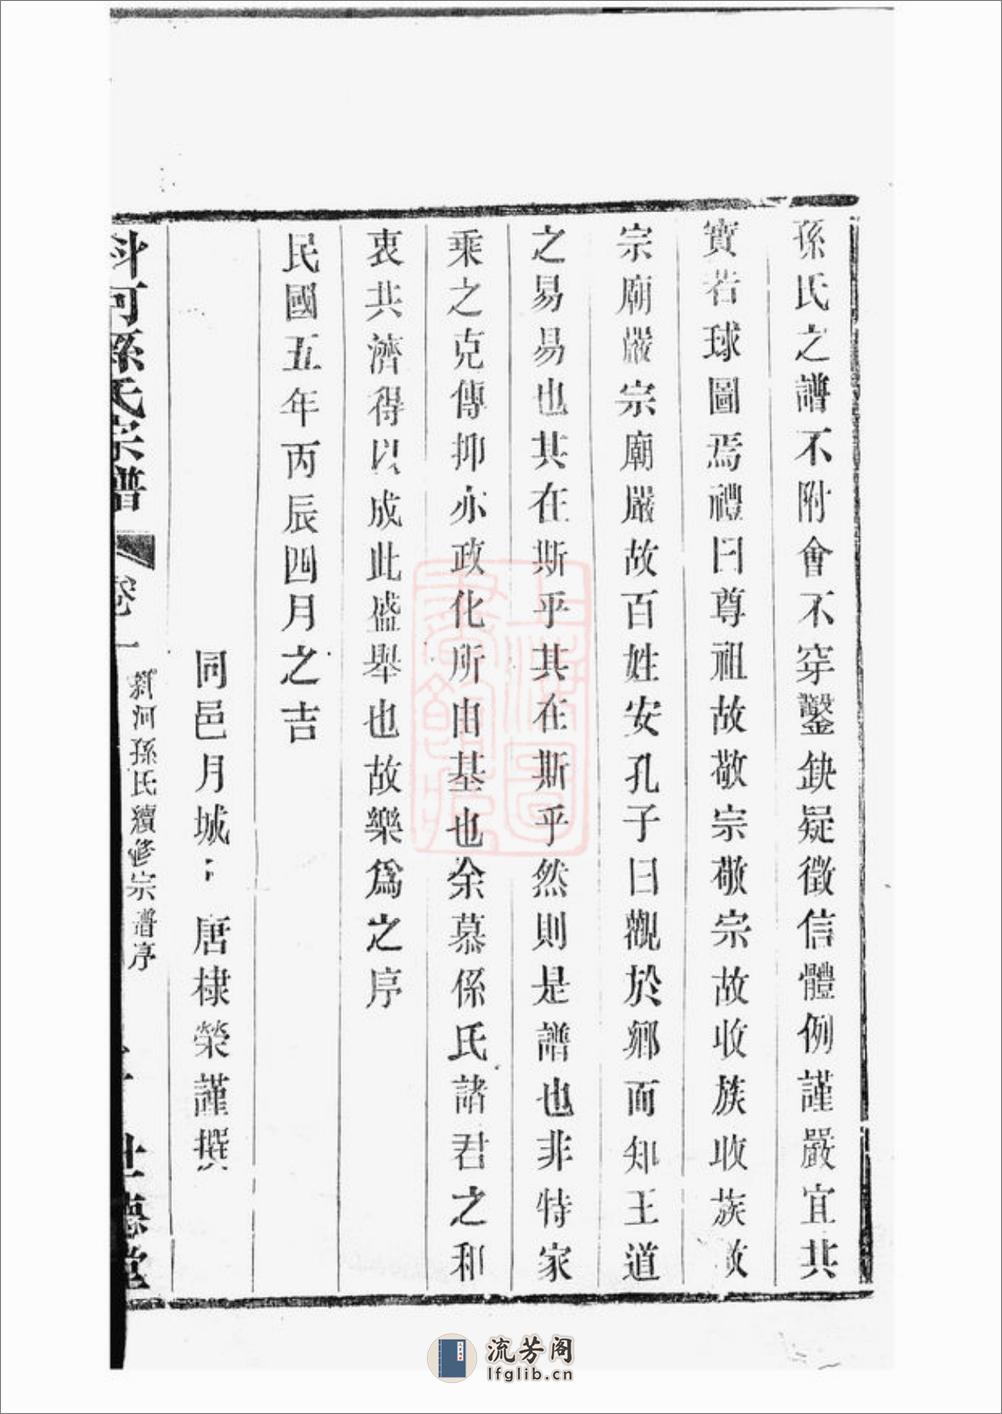 孫氏之譜不附會不穿鑿缺疑徵信體例謹嚴宜共
寳若球圖焉禮曰尊祖故敬宗敬宗故收族收族故
宗廟嚴宗廟嚴故百姓安孔子曰觀於鄉而知王道
之易易也其在斯乎其在斯乎然則是譜也非特家
乘之克傳抑亦政化所由基也余慕係氏諸君之和
衷共濟得以成此盛舉也故樂為之序
民國五年丙辰四月之吉
同邑月城唐棣榮謹撰
河孫氏宗譜
卷一
新河孫氏續修宗譜序
世德堂
上海圖書館藏
流芳阁
lfglib.cn